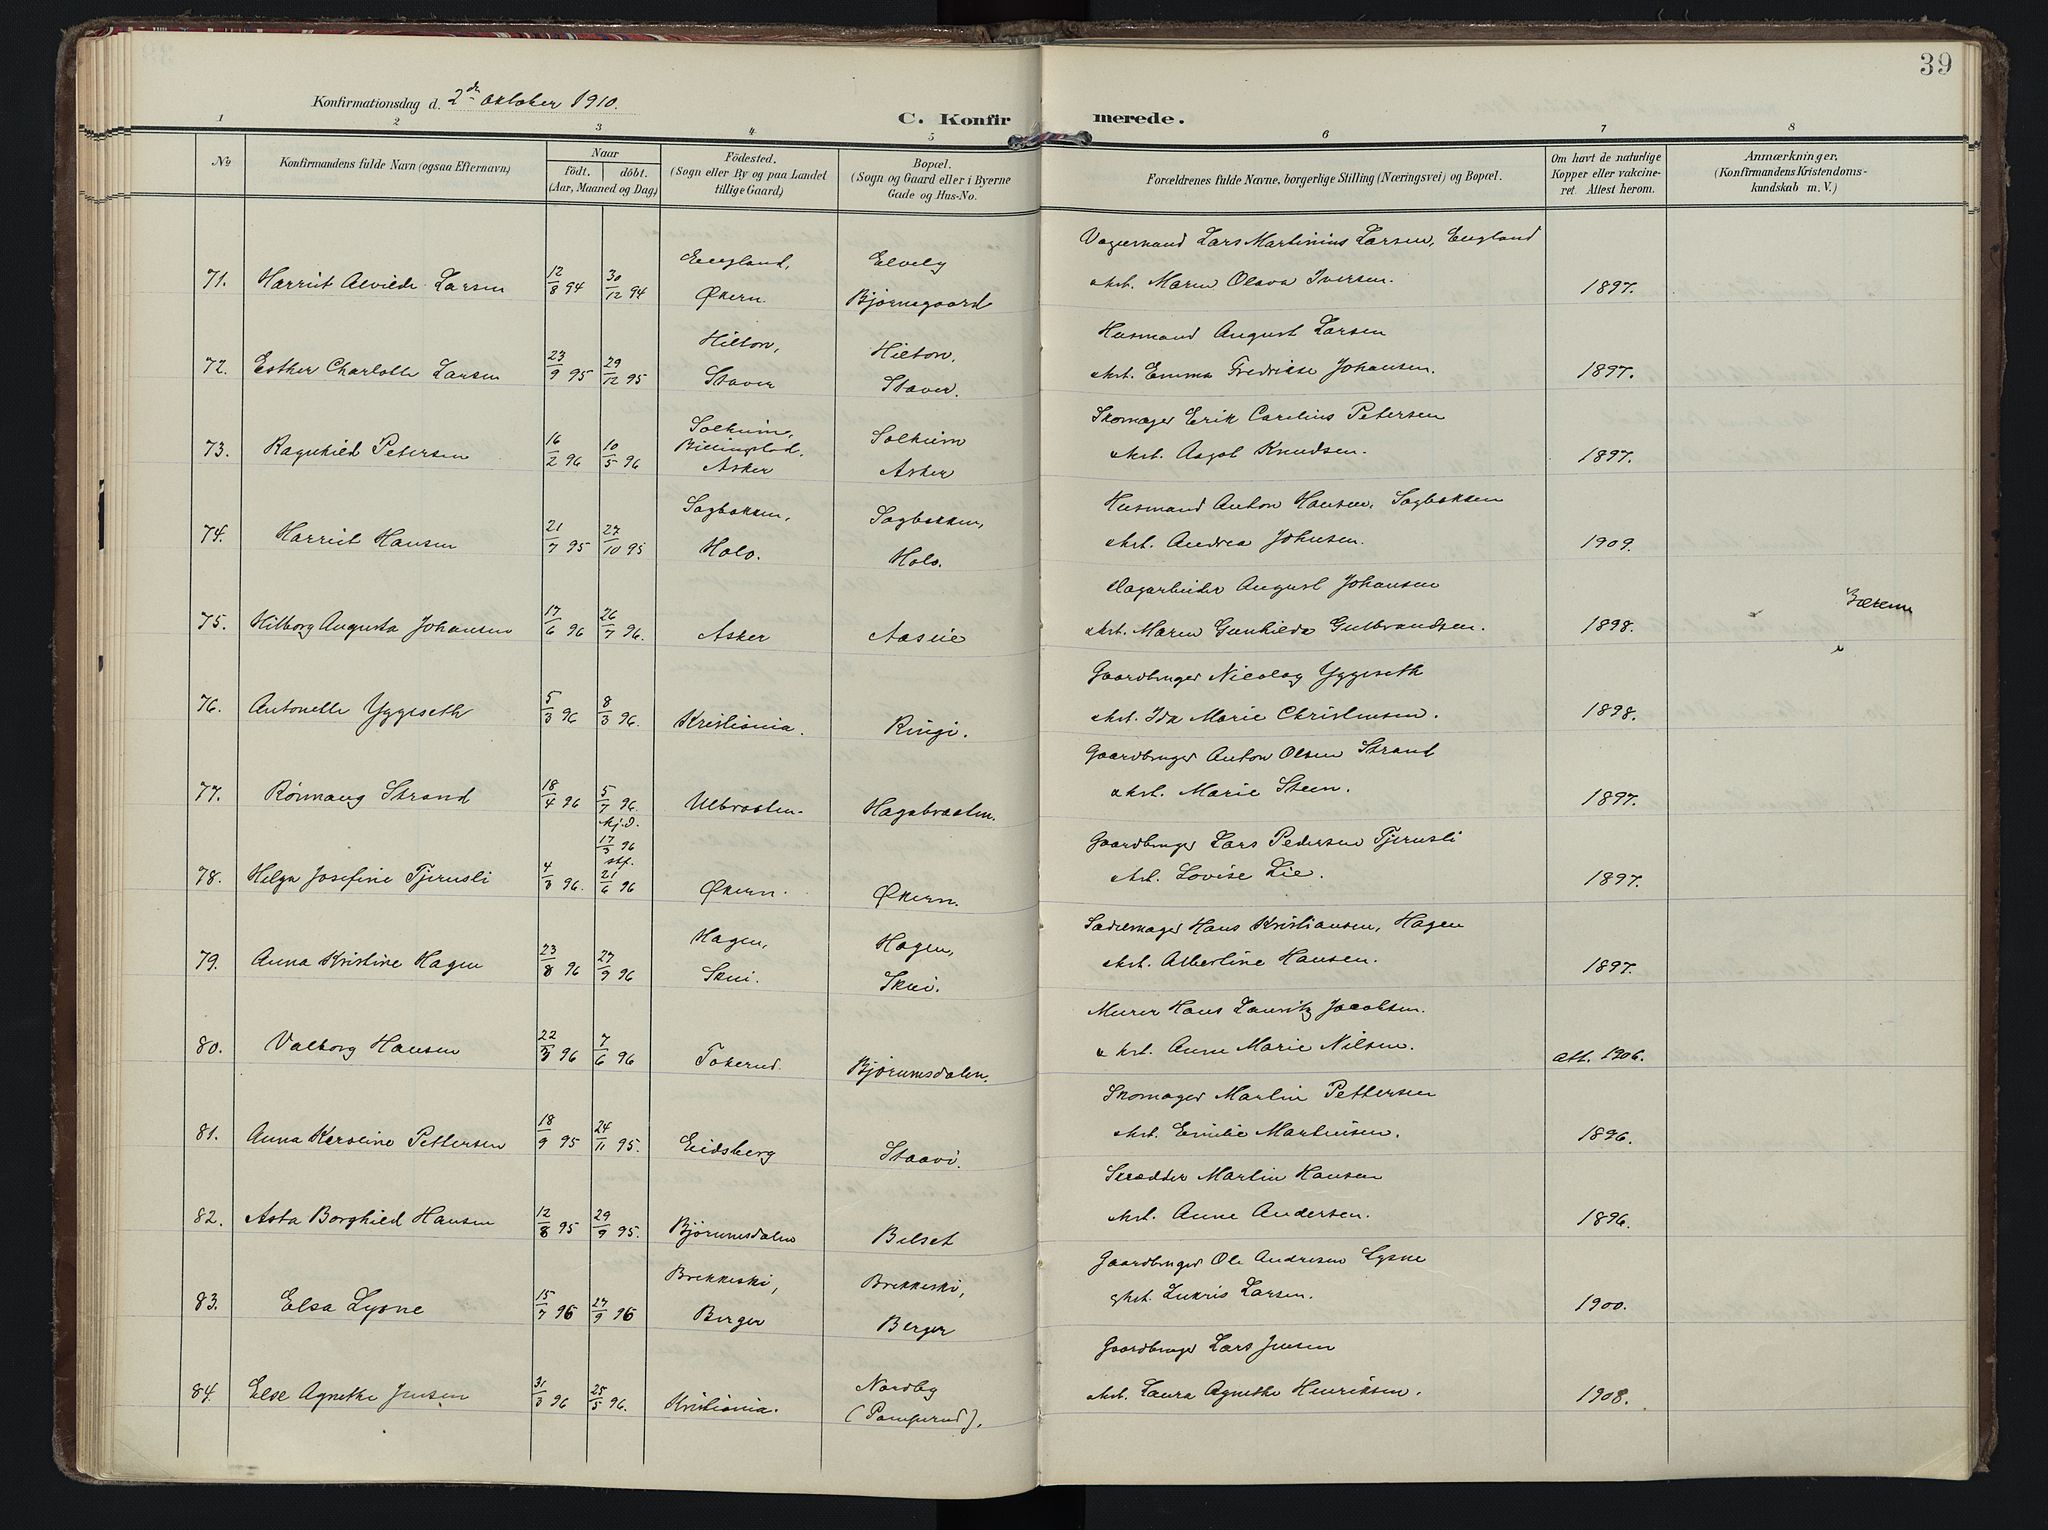 39
Konfirmationsdag d. 2den Oktober 1910.
C. Konfirmerede.
1 2 3 4 5 6 7 8
No
Konfirmandens fulde Navn (ogsaa Efternavn)
Naar
födt. döbt.
(Aar, Maaned og Dag)
Födested.
(Sogn eller By og paa Landet
tillige Gaard)
Bopæl.
(Sogn og Gaard eller i Byerne
Gade og Hus-No.
Forældrenes fulde Navne, borgerlige Stilling (Næringsvei) og Bopæl.
Om havt de naturlige
Kopper eller vakcine-
ret. Attest herom.
Anmærkninger,
(Konfirmandens Kristendoms-
kundskab m. V.)
71. Harriet Alvilde Larsen 12/8 94 30/12 94 England, Økern. Elvely Bjørnegaard
Lars Martinius Larsen, England
Maren Olava Iversen. 1897.
72. Esther Charlotte Larsen 23/9 95 29/12 95 Hilton, Staver Hilton, Staver.
Husmand August Larsen
Emma Fredrikse Johansen. 1897.
73. Ragnhild Petersen 16/2 96 10/5 96 Solheim, Billingstad, Asker Solheim Asker
Skomager Erik Carelius Petersen
Aagot Knudsen. 1897.
74. Harriet Hansen 21/7 95 27/10 95 Sagbakken, Holo. Sagbakken, Holo.
Husmand Anton Hansen, Sagbakken
Andrea Johnsen. 1909.
75. Hilborg Augusta Johansen 17/6 96 26/7 96. Asker
Dagarbeider August Johansen
Maren Gunhilda Gulbrandsen. 1898.
76. Antonette Yggeseth 5/3 96 8/3 96. Kristiania. Ringi.
Gaardbruger Nicolay Yggeseth
Ida Marie Christensen. 1898.
77. Rønnaug Strand 18/4 96 5/7 96. Ulbraaten Hagabraaten.
Gaardbruger Anton Olsen Strand
Marie Steen. 1897.
78. Helga Josefine Tjernsli 4/3 96. hj.d. 17/3 96 stf. 21/6 96 Økern. Økern.
Gaardbruger Lars Pedersen Tjernsli
Lovise Lie. 1897.
79. Anna Kristine Hagen 23/8 96 27/9 96 Hagen, Skui. Hagen, Skui.
Sadelmager Hans Kristiansen, Hagen
Albertine Hansen. 1897.
80. Valborg Hansen 22/3 96 7/6 96 Tokerud. Bjørumsdalen.
Murer Hans Lauritz Jacobsen.
Anne Marie Nilsen. Att. 1906.
81. Anna Karoline Pettersen 18/9 95 24/11 95. Eidsberg Staavi.
Skomager Martin Pettersen
Emilie Martinsen. 1896.
82. Asta Borghild Hansen 12/8 95 29/9 95. Bjørumsdalen Belset
Skrædder Martin Hansen
Anne Andersen. 1896.
83. Elsa Lysne 15/7 96 27/9 96 Brekkeski, Berger Brekkeski, Berger
Gaardbruger Ole Andresen Lysne
Larsen. 1900.
84. Else Agnethe Jensen 31/3 96 25/5 96. Kristiania. Nordby
Gaardbruger Lars Jensen
Laura Agnethe Henriksen. 1908.